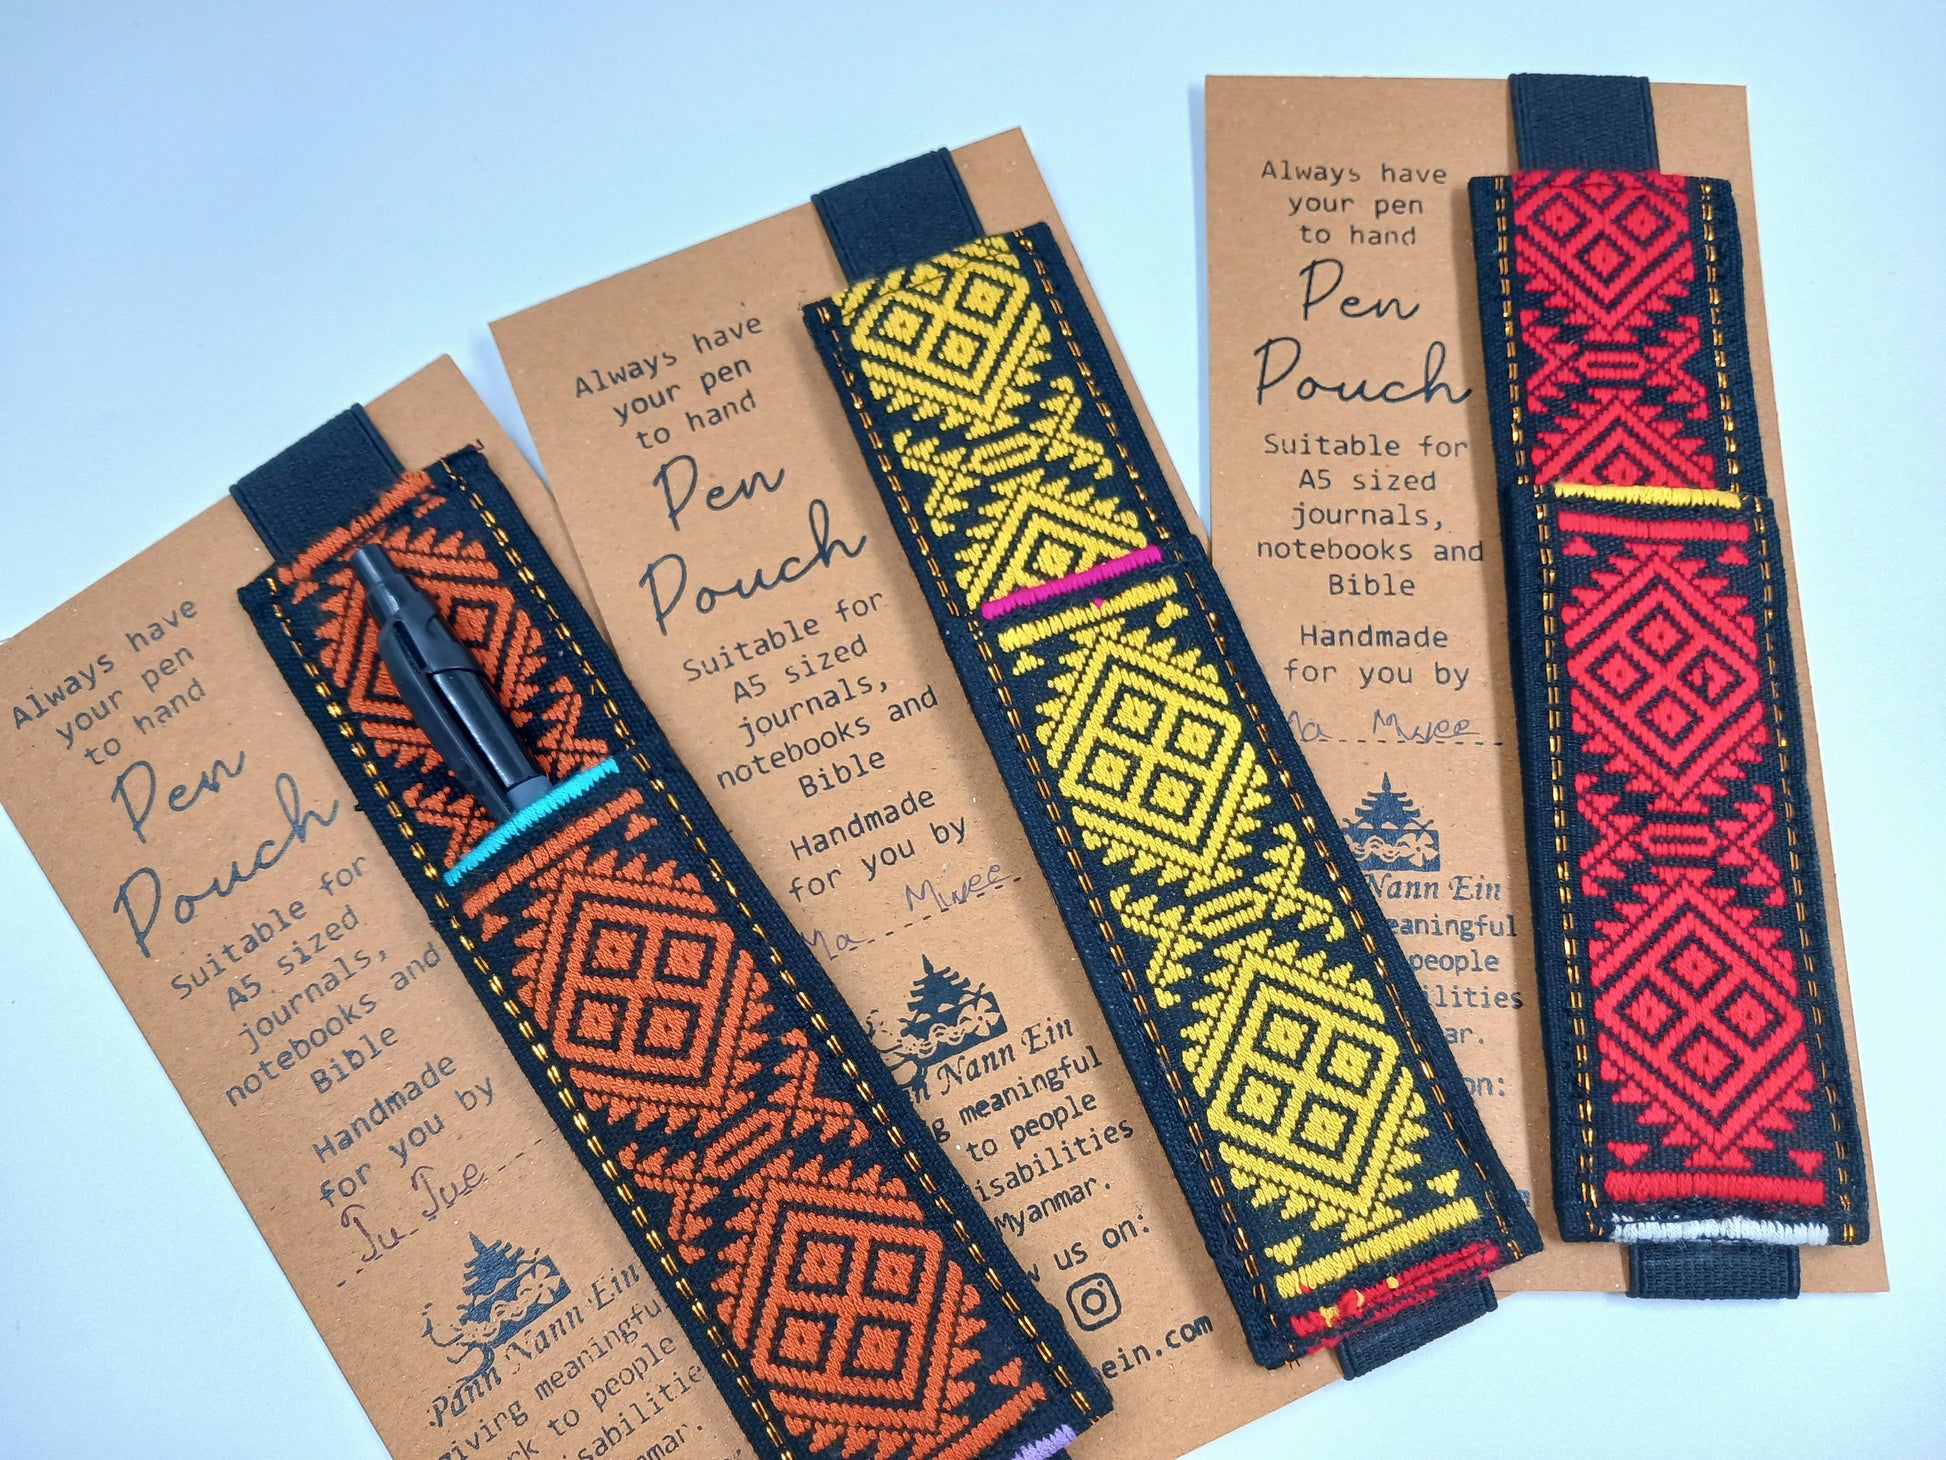 Always have
your pen
to hand
Pen
Pouch
Suitable for
A5 sized
journals,
notebooks and
Bible
Handmade
for you by
Tu Tue
Pann Nann Ein
giving meaningful
to people
mar.
Always have
your pen
to hand
Pen
Pouch
Suitable for
A5 sized
journals,
notebooks and
Bible
Handmade
for you by
Ma Mwee
Nann Ein
meaningful
to people
isabilities
Myanmar.
us on:
ein.com
Always have
your pen
to hand
Pen
Pouch
Suitable for
A5 sized
journals,
notebooks and
Bible
Handmade
for you by
Ma Mwee
Nann Ein
eaningful
people
ilities
ar.
on: